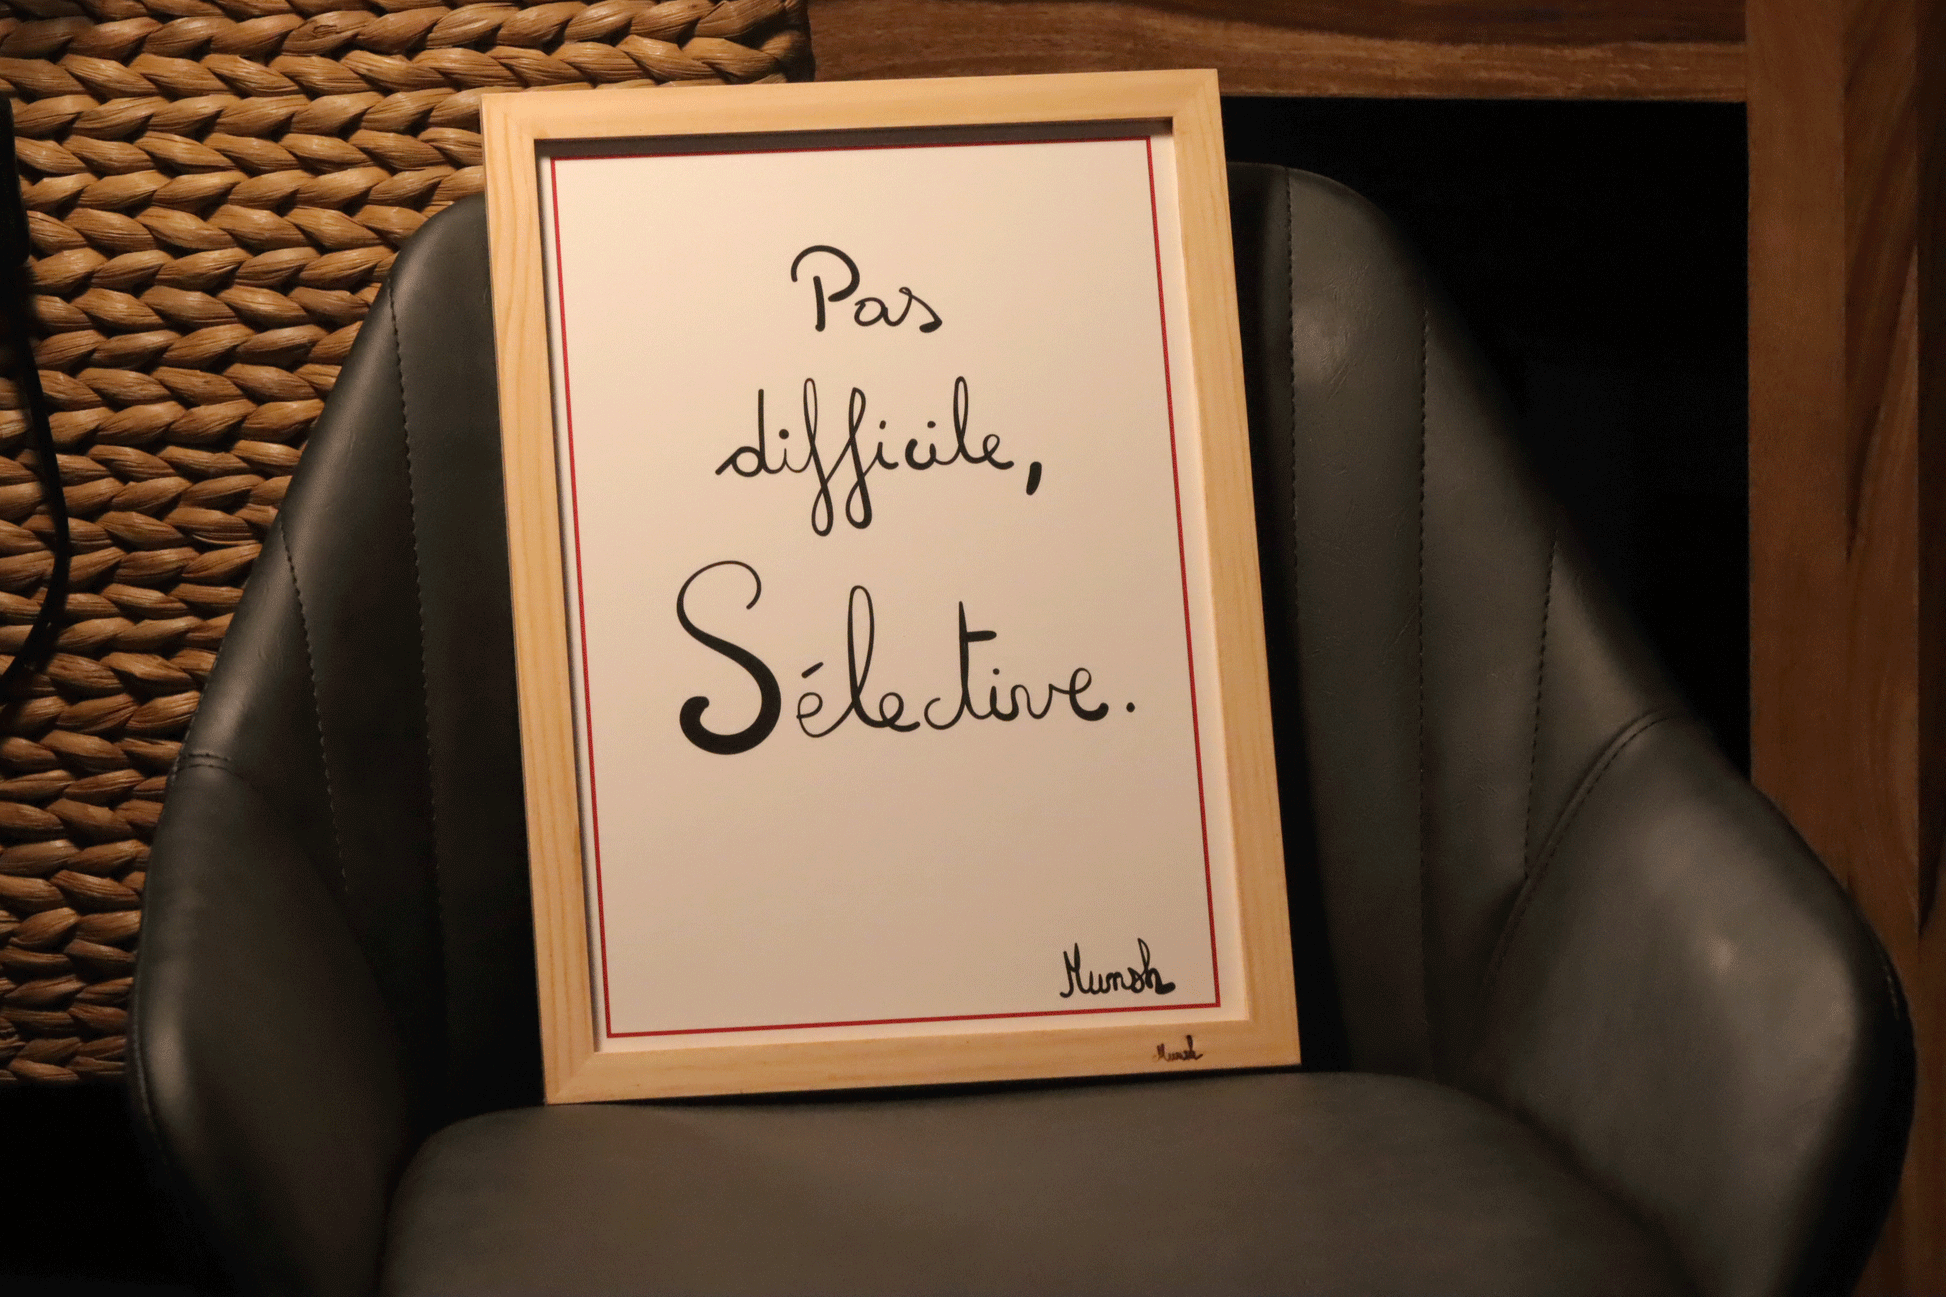 Pas
difficile,
Sélective.
Munsh
Munsh